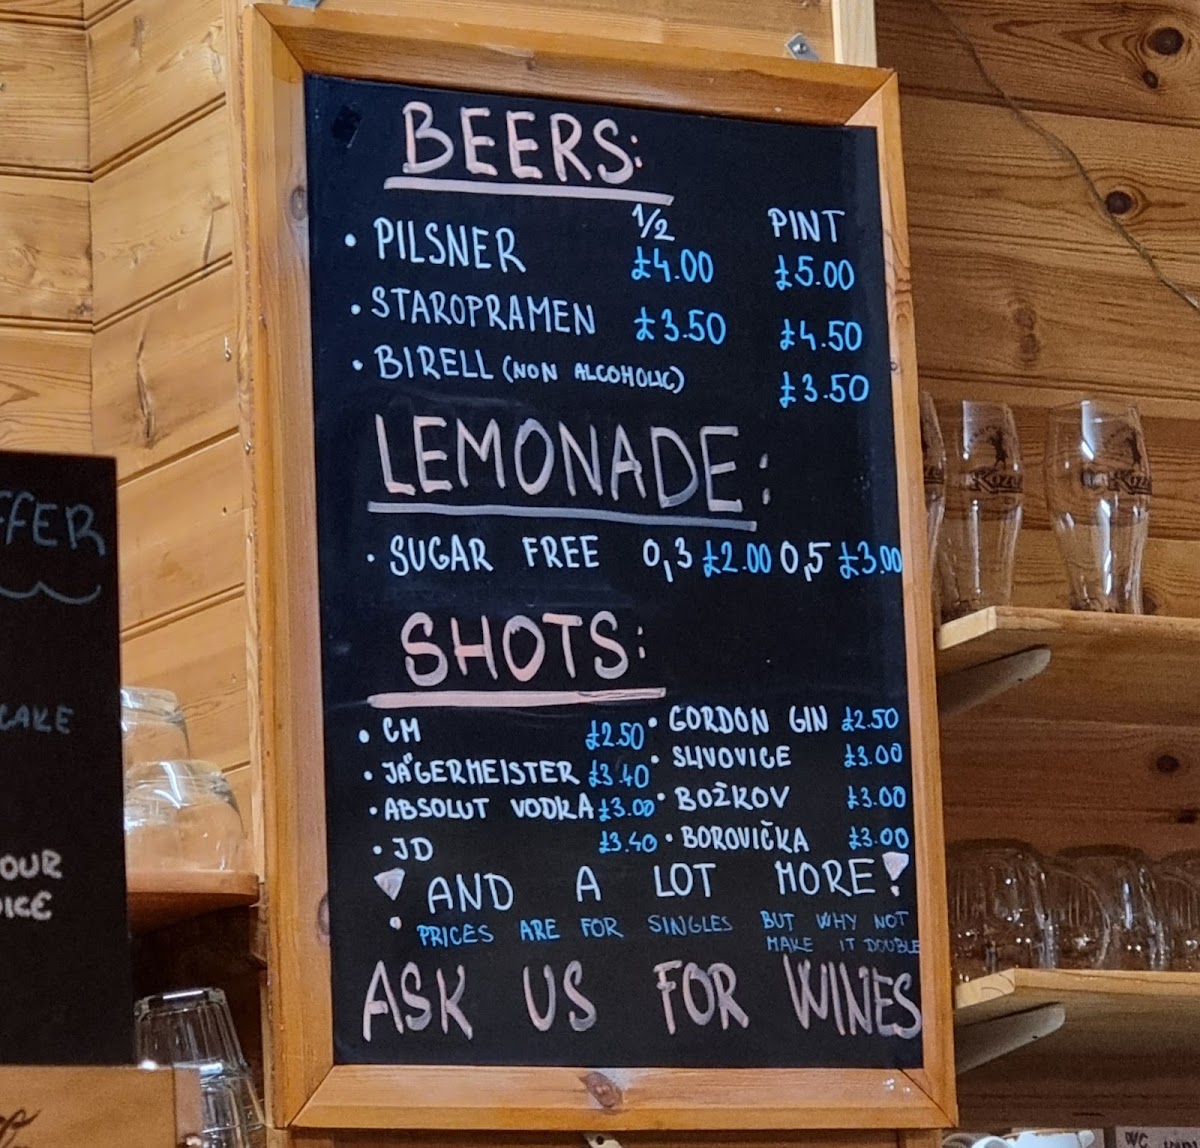 BEERS:
1/2 PINT
• PILSNER £4.00 £5.00
• STAROPRAMEN £3.50 £4.50
• BIRELL (NON ALCOHOLIC) £3.50
LEMONADE:
• SUGAR FREE 0,3 £2.00 0,5 £3.00
SHOTS:
• CM £2.50 • GORDON GIN £2.50
• JÄGERMEISTER £3.40 • SLIVOVICE £3.00
• ABSOLUT VODKA £3.00 • BOŽKOV £3.00
• JD £3.40 • BOROVIČKA £3.00
! AND A LOT MORE!
PRICES ARE FOR SINGLES BUT WHY NOT
MAKE IT DOUBLE
ASK US FOR WINES
FFER
CAKE
OUR